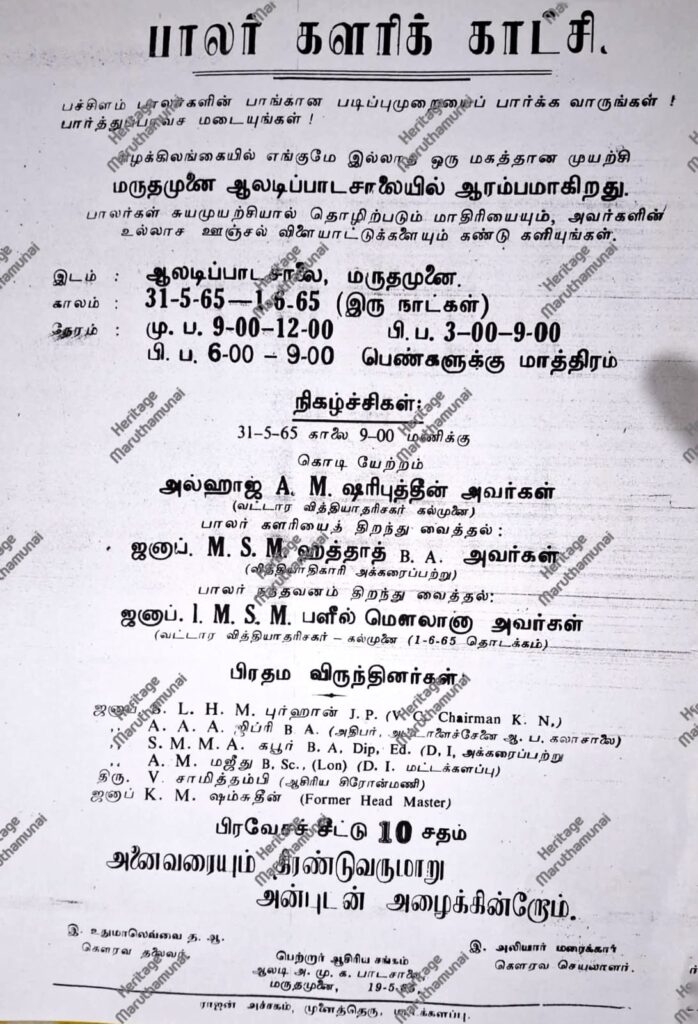 பாலர் களரிக் காட்சி.
பச்சிளம் பாலர்களின் பாங்கான படிப்புமுறையைப் பார்க்க வாருங்கள் !
பார்த்துப்பரவச மடையுங்கள் !
கிழக்கிலங்கையில் எங்குமே இல்லாத ஒரு மகத்தான முயற்சி
மருதமுனை ஆலடிப்பாடசாலையில் ஆரம்பமாகிறது.
பாலர்கள் சுயமுயற்சியால் தொழிற்படும் மாதிரியையும், அவர்களின்
உல்லாச ஊஞ்சல் விளையாட்டுக்களையும் கண்டு களியுங்கள்.
இடம் : ஆலடிப்பாடசாலை, மருதமுனை.
காலம் : 31-5-65—1-6-65 (இரு நாட்கள்)
நேரம் : மு. ப. 9-00-12-00 பி. ப. 3-00-9-00
பி. ப. 6-00 - 9-00 பெண்களுக்கு மாத்திரம்
நிகழ்ச்சிகள்:
31-5-65 காலை 9-00 மணிக்கு
கொடி யேற்றம்
அல்ஹாஜ் A. M. ஷரிபுத்தீன் அவர்கள்
(வட்டார வித்தியாதரிசகர் கல்முனை)
பாலர் களரியைத் திறந்து வைத்தல் :
ஜனாப். M. S. M. ஹத்தாத் B. A. அவர்கள்
(வித்தியாதிகாரி அக்கரைப்பற்று)
பாலர் நந்தவனம் திறந்து வைத்தல்:
ஜனாப். I. M. S. M. பளீல் மௌலானா அவர்கள்
(வட்டார வித்தியாதரிசகர் - கல்முனை (1-6-65 தொடக்கம்)
பிரதம விருந்தினர்கள்
ஜனாப் S. L. H. M. புர்ஹான் J. P. (V. C. Chairman K. N,)
,, A. A. A. B A. (அதிபர், அட்டாளைச்சேனை ஆ. ப. கலாசாலை)
,, S. M. M. A. கபூர் B. A, Dip, Ed. (D, I, அக்கரைப்பற்று
,, A. M. மஜீது B, Sc., (Lon) (D. I. மட்டக்களப்பு)
திரு. V. சாமித்தம்பி (ஆசிரிய சிரோன்மணி)
ஜனாப் K. M. ஷம்சுதீன் (Former Head Master)
பிரவேசச் சீட்டு 10 சதம்
அனைவரையும் திரண்டுவருமாறு
அன்புடன் அழைக்கின்றோம்.
இ. உதுமாலெவ்வை த. ஆ.
கௌரவ தலைவர்
பெற்றார் ஆசிரிய சங்கம்
ஆலடி அ. மு. க. பாடசாலை,
மருதமுனை, 19-5-65.
இ. அலியார் மரைக்கார்
கௌரவ செயலாளர்.
ராஜன் அச்சகம், முனைத்தெரு, மட்டக்களப்பு.
Heritage Maruthamunai